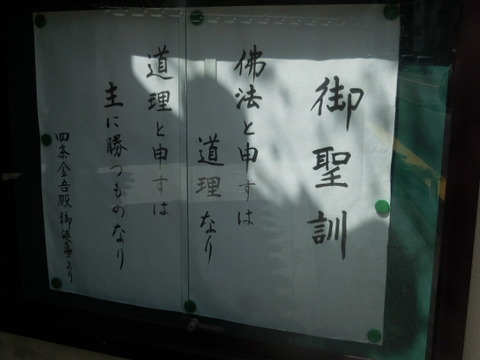 御聖訓
佛法と申すは
道理なり
道理と申すは
主に勝つものなり
四条金吾殿御返事より